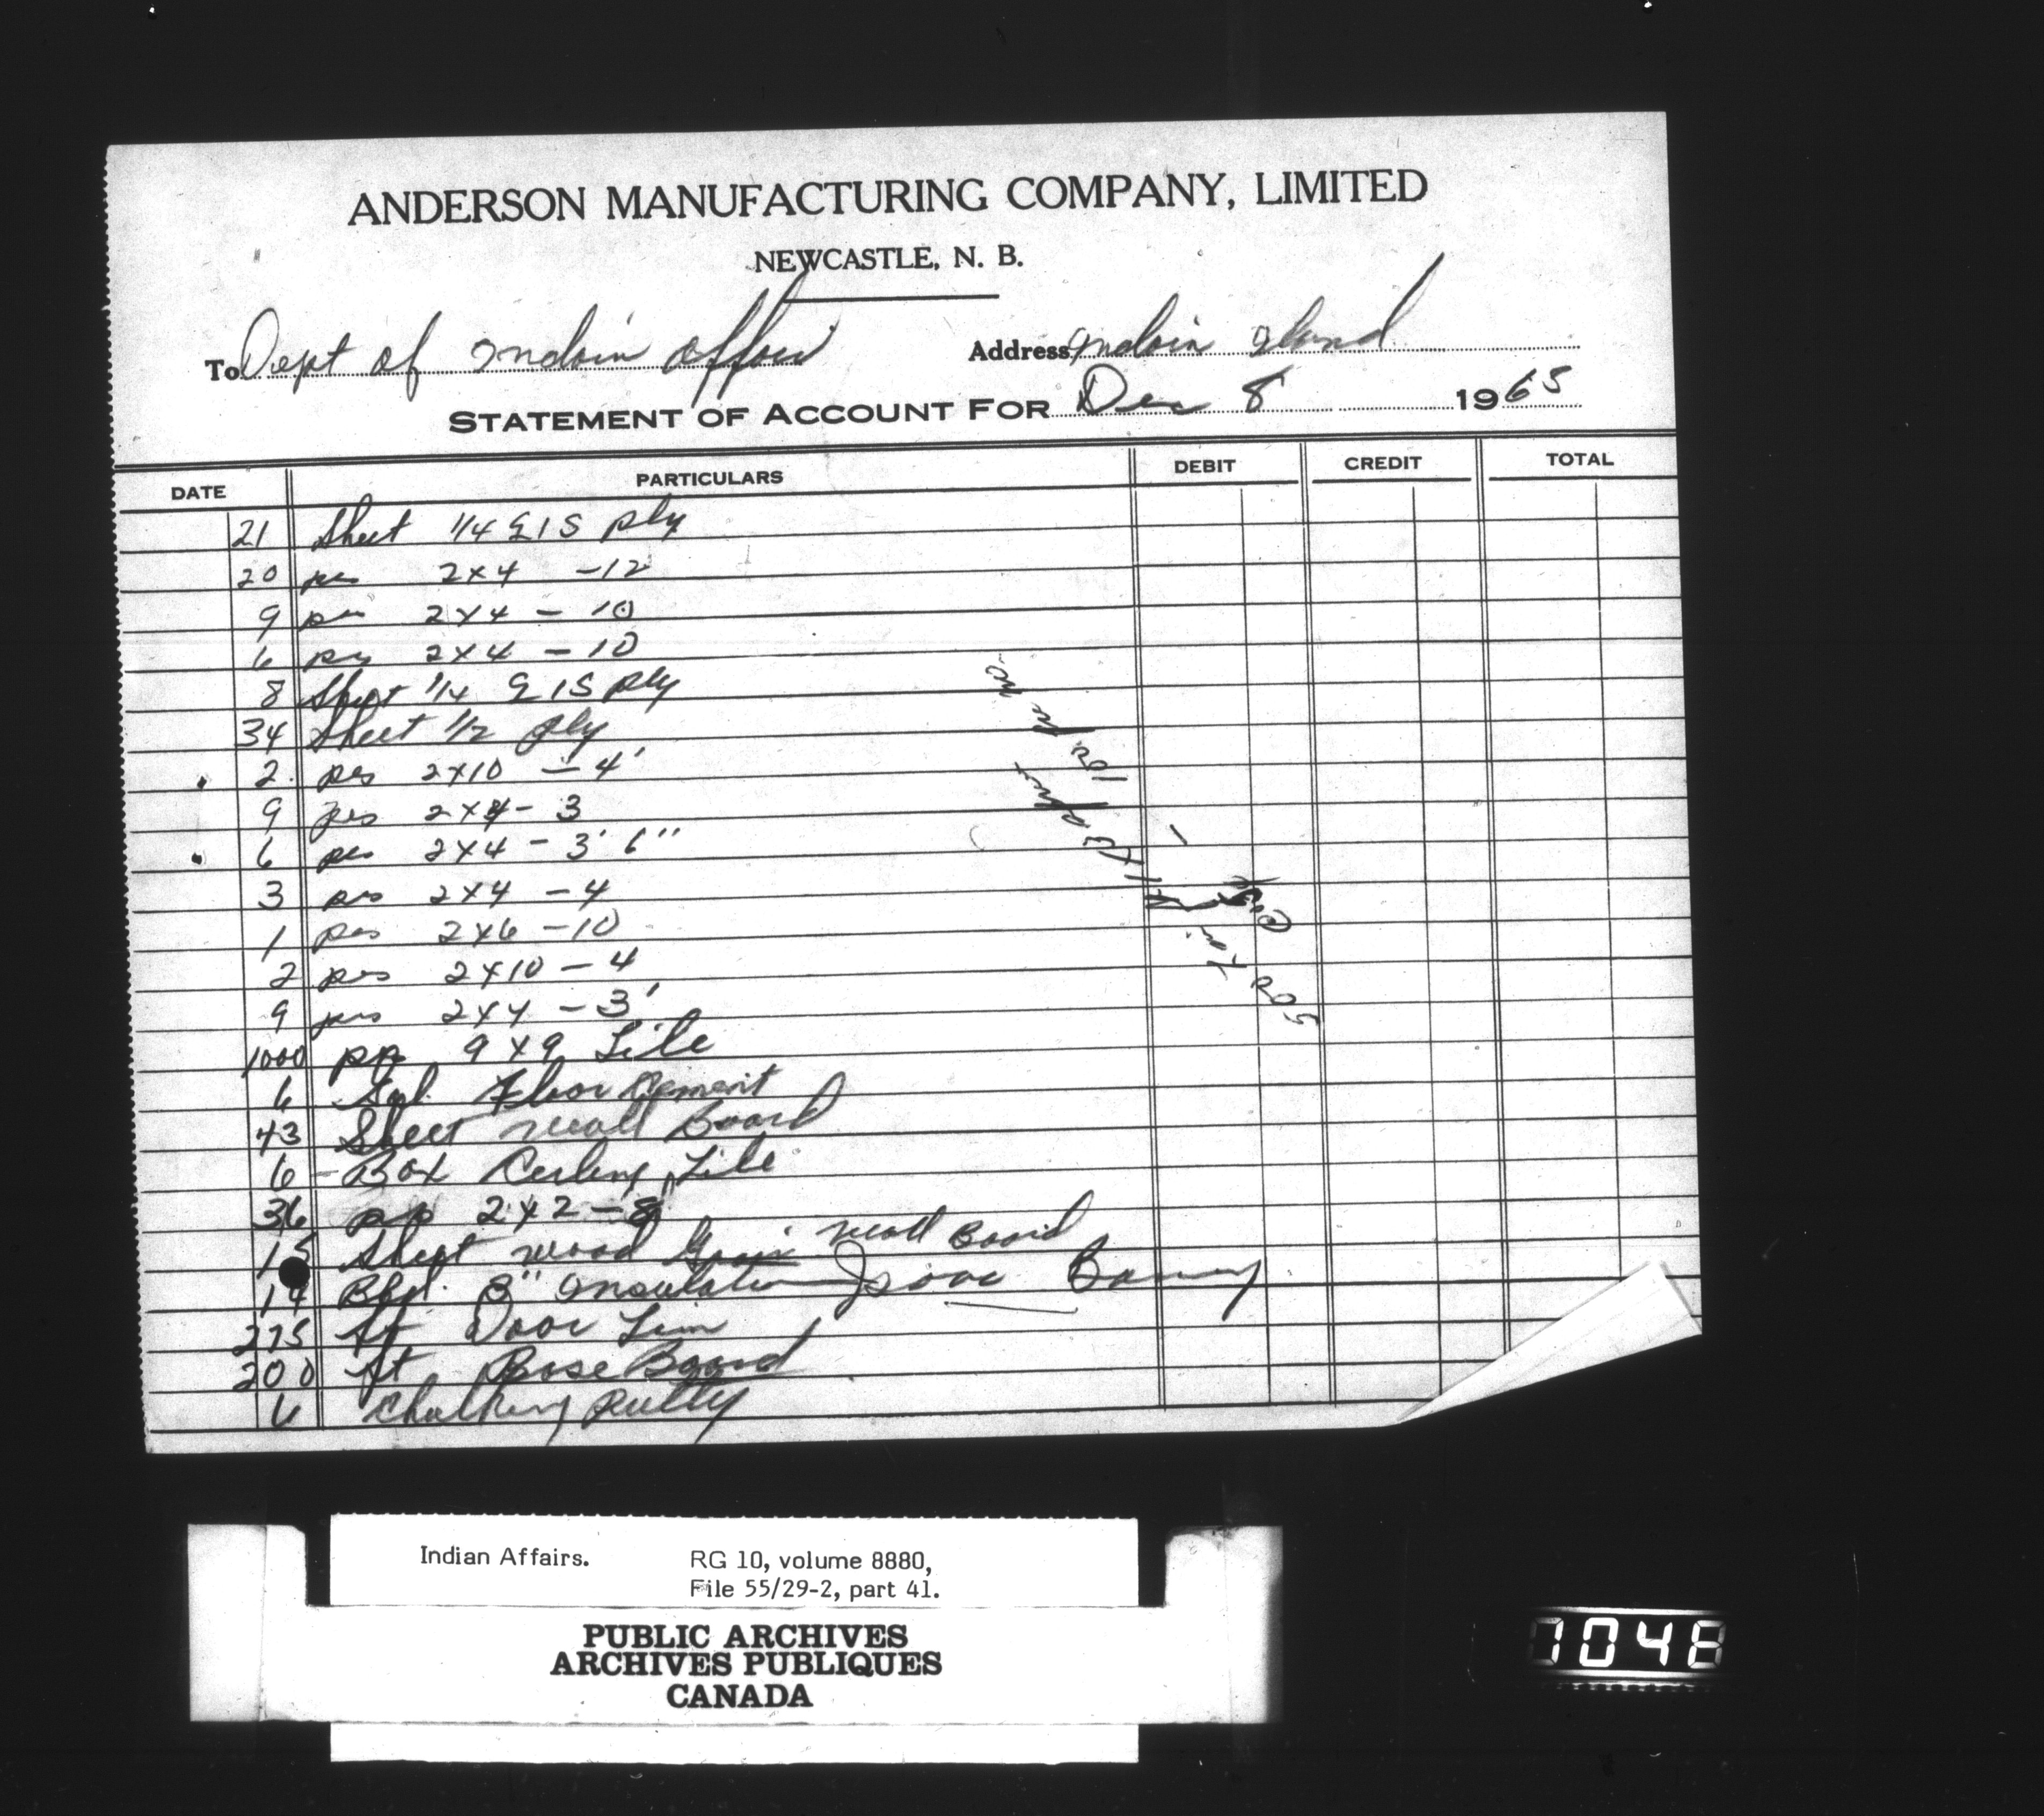 ANDERSON MANUFACTURING COMPANY, LIMITED
NEWCASTLE, N. B.
To Dept of Indain Affair Address Indain Iland
STATEMENT OF ACCOUNT FOR Dec 8 1965
DATE PARTICULARS DEBIT CREDIT TOTAL
21 Sheet 1/4 G1S ply
20 pcs 2x4 -12
9 pcs 2x4 - 10
6 pcs 2x4 - 10
8 Sheet 1/4 G1S ply
34 Sheet 1/2 ply
2 pcs 2x10 - 4'
9 pcs 2x4 - 3
6 pcs 2x4 - 3' 6"
3 pcs 2x4 - 4
1 pcs 2x6 - 10
2 pcs 2x10 - 4
9 pcs 2x4 - 3'
1000 9x9 Tile
6 Gal. Floor Cement
43 Sheet Wall Board
6 - Box Ceiling Tile
36 2x2 - 8
15 Sheet Wood Grain Wall Board
14 Bdl. 3" Insulation Isaac
275 ft Door Trim
200 ft Base Board
6 Chalking Putty
Indian Affairs. RG 10, volume 8880,
File 55/29-2, part 41.
PUBLIC ARCHIVES
ARCHIVES PUBLIQUES
CANADA
1048